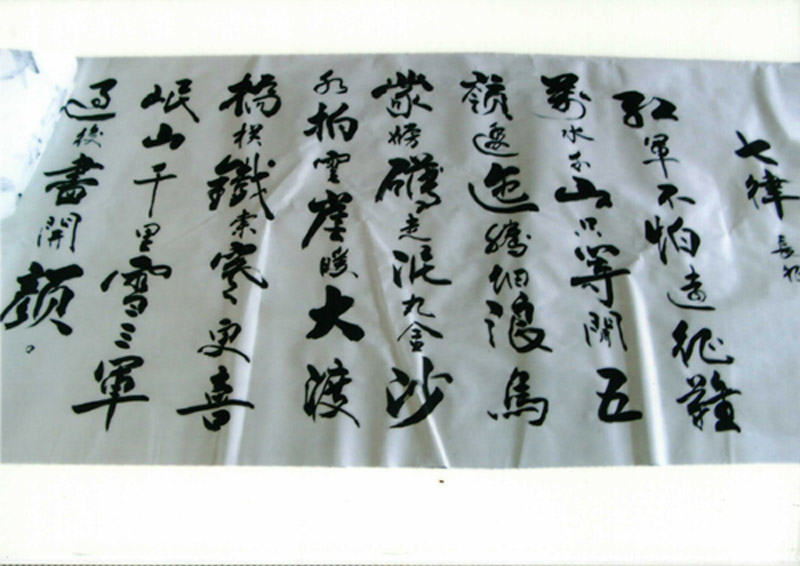 七律 長征
紅軍不怕遠征難
萬水千山只等閒五
嶺逶迤騰細浪烏
蒙磅礴走泥丸金沙
水拍雲崖暖大渡
橋橫鐵索寒更喜
岷山千里雪三軍
過後盡開顏。